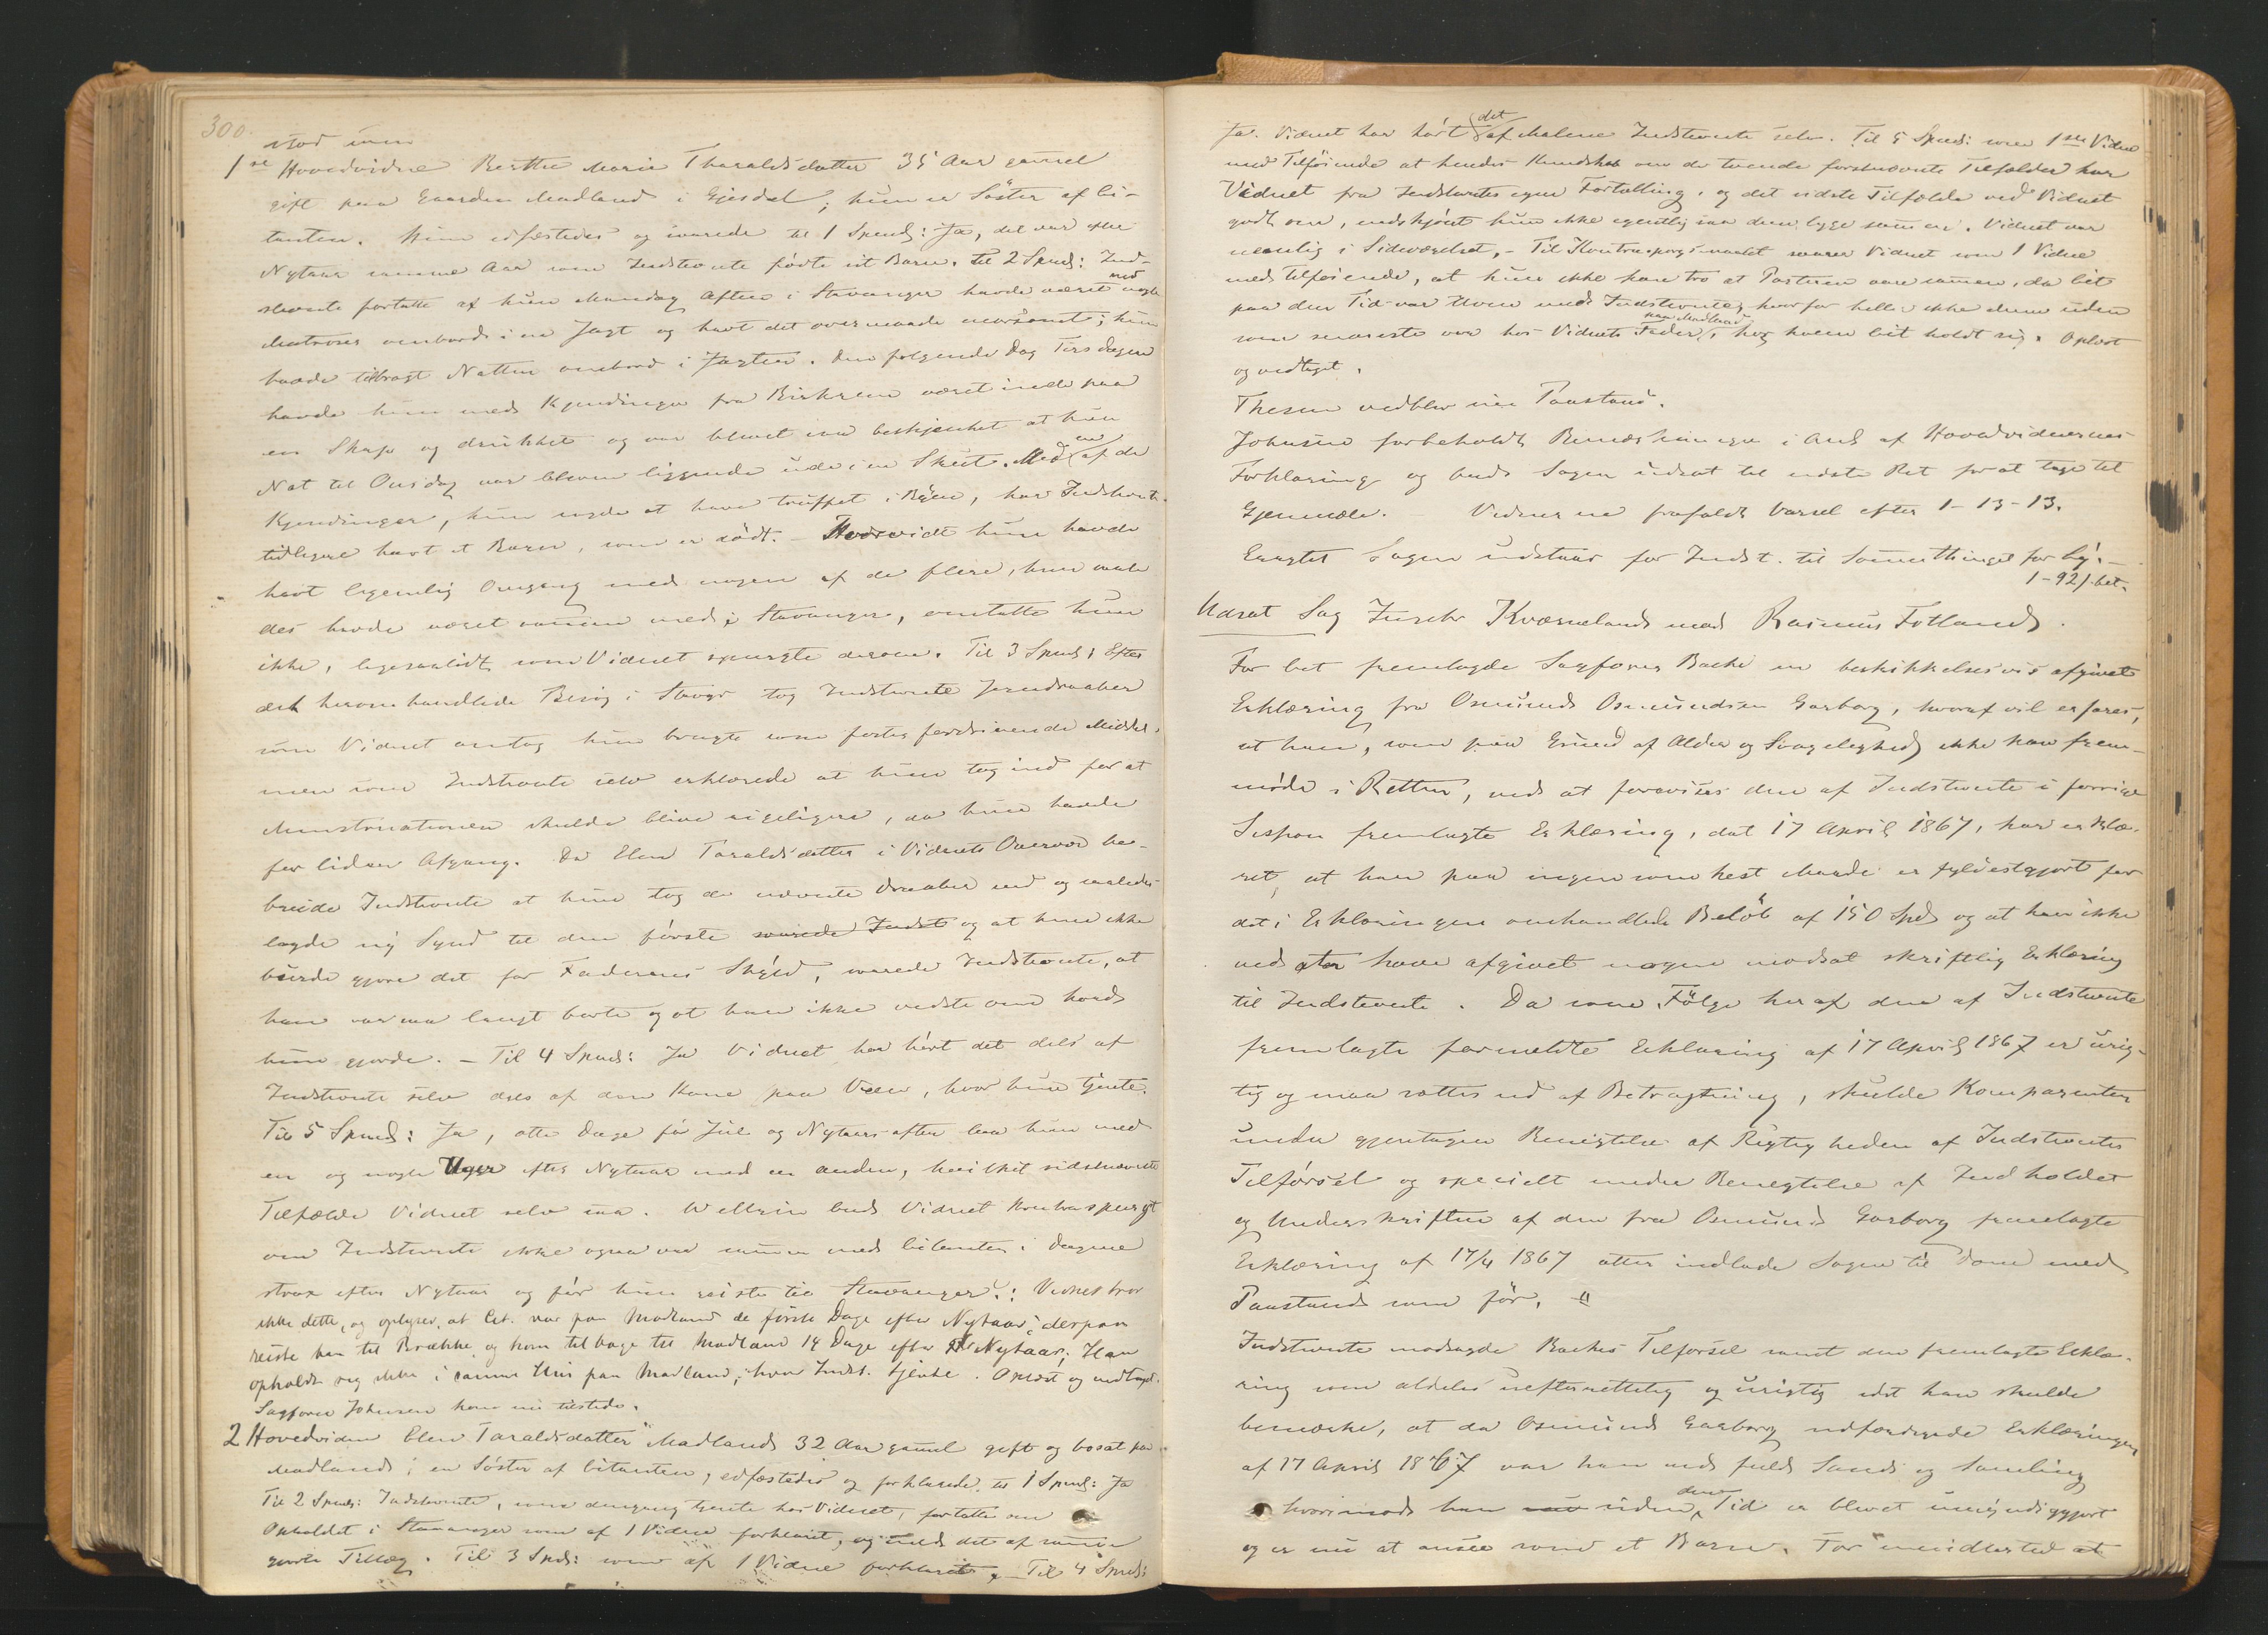 300.
stod inn
1ste Hovedvidne Berthe Marie Tharaldsdatter 35 Aar gammel
gift paa Gaarden Madland i Gjesdal; hun er Söster af Ci-
tanten. Hun edfæstedes og svarede til 1 Spmls: Ja, det var efter
Nytaar samme Aar som Indstevnte födte sit Barn. Til 2 Spml: Ind-
stevnte fortalte at hun Mandag Aften i Stavanger havde været med nogle
Matroser ombord i en Jagt og havt det overmaade morsomt; hun
havde tilbragt Natten ombord i Jagten. Den følgende Dag Tirsdagen
havde hun med Kjendinger fra Birkrem været inde paa
en Skap og drukket og var blevet saa beskjænket at hun
Nat til Onsdag var bleven liggende ude i en Skut. Med en af de
Kjendinger, hun sagde at have truffet i Byen, har Indstevnte
tidligere havt et Barn, som er dödt. - Hvorvidt hun havde
havt legemlig Omgang med nogen af de flere, hun saale-
des havde været sammen med i Stavanger, omtalte hun
ikke, ligesaalidt som Vidnet spurgte derom. Til 3 Spmls: Efter
det herom handlede Besøg i Stavgr tog Indstevnte Jerndraaber
som Vidnet antog hun brugte som fosterfordrivende Middel,
men som Indstevnte selv erklærede at hun tog ind for at
Menstruationen skulde blive rigeligere, da hun havde
for liden Afgang. Da Elen Taraldsdatter i Vidnets Overvær be-
breidede Indstevnte at hun tog de nævnte Draaber ind og saaledes
lagde ny Synd til den første svarede Indst og at hun ikke
burde gjøre det for Faderens Skyld, svarede Indstevnte, at
han var saa langt borte og at han ikke vidste om hvad
hun gjorde. - Til 4 Spmls: Ja Vidnet har hørt det dels af
Indstevnte selv dels af den Kone paa Veen, hvor hun tjente.
Til 5 Spmls: Ja, otte Dage før Jul og Nytaarsaften laa hun med
en og nogle Uger efter Nytaar med en anden, hvilket sidstnævnte
Tilfælde Vidnet selv saa. Wellein bad Vidnet kontraspurgt
om Indstevnte ikke ogsaa var sammen med Citanten i Dagene
strax efter Nytaar og før hun reiste til Stavanger: Vidnet tror
ikke dette, og oplyser, at Cit. var paa Madland de første Dage efter Nytaar; derpaa
reiste han til Brække og kom tilbage til Madland 14 Dage efter Nytaar; Han
opholdt sig ikke i samme Hus paa Madland, hvor Indst. tjente. Oplæst og vedtaget.
Sagfører Johnsen kom nu tilstede.
2 Hovedvidne Elen Taraldsdatter Madland 32 Aar gammel gift og bosat paa
Madland; en Söster af Citanten, edfæstedes og forklarede til 1 Spmls: Ja
Til 2 Spmls: Indstevnte, som dengang tjente hos Vidnet, fortalte om
Opholdet i Stavanger som af 1 Vidne forklaret, og med det af samme
gjorte Tillæg. Til 3 Spls: som af 1 Vidne forklaret. - Til 4 Spmls:
Ja. Vidnet har hørt det af Malene Indstevnte selv. Til 5 Spmls: som 1ste Vidne
med Tilföiende at hendes Kundskab om de tvende førstnævnte Tilfælder har
Vidnet fra Indstevntes egen Fortælling, og det sidste Tilfælde ved Vidnet
godt om, endskjønt hun ikke egentlig saa dem ligge sammen. Vidnet var
nemlig i Sideværelset. - Til Kontraspørgsmaalet svarer Vidnet som 1 Vidne
med tilføiende, at hun ikke kan tro at Parterne vare sammen, da Cit
paa den Tid var Uven med Indstevnte, hvorfor heller ikke denne uden
som snareste var hos Vidnets Fader paa Madland, hos hvem Cit holdt sig. Oplæst
og vedtaget.
Thesen vedblev sin Paastand.
Johnsen forbeholdt Bemærkninger i Anl af Hovedvidnernes
Forklaring og bad Sagen udsat til næste Ret for at tage til
Gjenmæle. - Vidnerne frafaldt Varsel efter 1-13-13.
Eragtet Sagen udstaar for Indst. til Sommerthinget for Gj. -
1-92 ß bet.
Udsat Sag Inscr Kværneland mod Rasmus Fotland.
For Cit fremlagde Sagfører Backe en beskikkelsesvis afgivet
Erklæring fra Osmund Osmundsen Garborg, hvoraf vil erfares,
at han, som paa Grund af Alder og Svagelighed ikke kan frem-
møde i Retten, ved at forevises den af Indstevnte i forrige
Session fremlagte Erklæring, dat 17 April 1867, har erklæ-
ret, at han paa ingensomhelst Maade er fyldestgjort for
det i Erklæringen omhandlede Beløb af 150 Spd og at han ikke
ved at have afgivet nogen modsat skriftlig Erklæring
til Indstevnte. Da som Følge heraf den af Indstevnte
fremlagte formeldte Erklæring af 17 April 1867 er urig-
tig og maa sættes ud af Betragtning, skulde Komparenten
under gjentagen Benegtelse af Rigtigheden af Indstevntes
Tilførsel og specielt under Benegtelse af Indholdet
og Underskriften af den fra Osmund Garborg fremlagte
Erklæring af 17/4 1867 atter indlade Sagen til Dom med
Paastand som før.
Indstevnte modsagde Backes Tilførsel samt den fremlagte Erklæ-
ring som aldeles uefterrettelig og urigtig idet han skulde
bemærke, at da Osmund Garborg udfærdigede Erklæringen
af 17 April 1867 var han ved fuld Sands og Samling
hvorimod han siden den Tid er blevet umyndiggjort
og er nu at ansee som et Barn. For imidlertid at